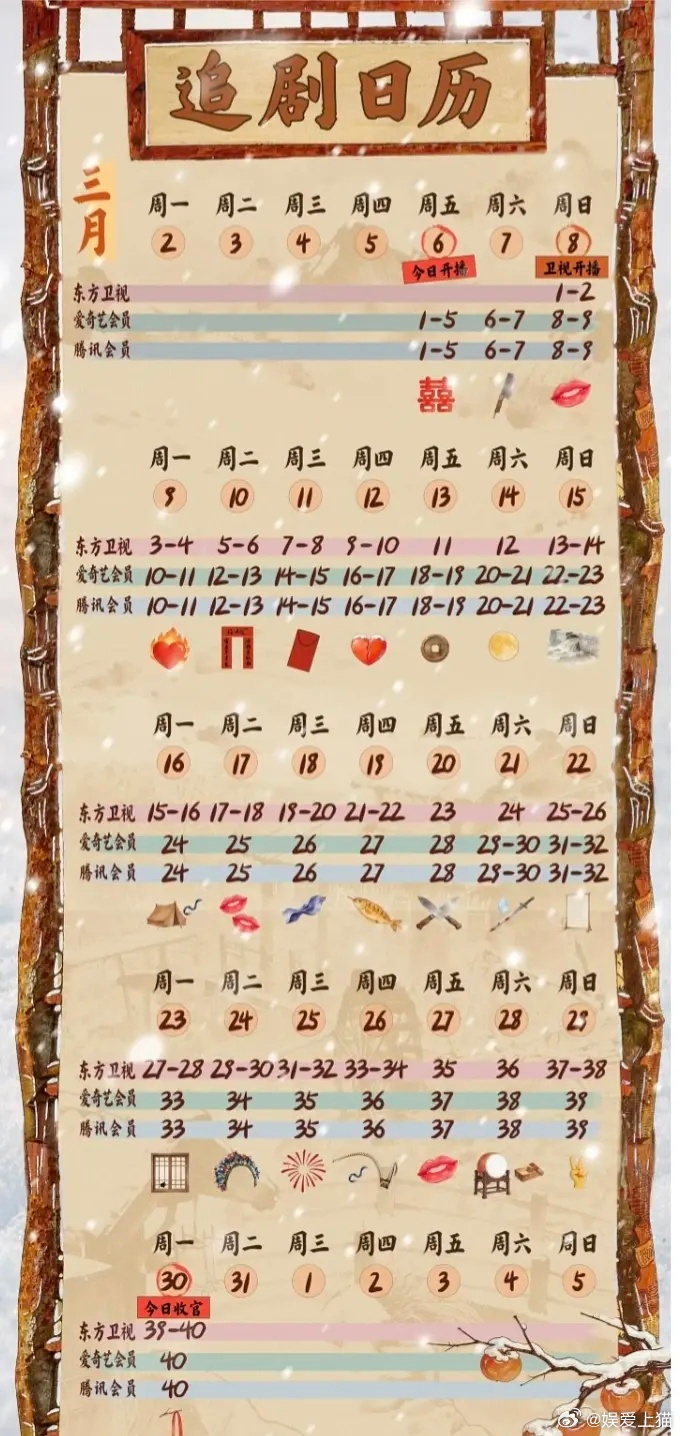 追剧日历
三月
周一 周二 周三 周四 周五 周六 周日
2 3 4 5 6 7 8
今日开播 卫视开播
东方卫视 1-2
爱奇艺会员 1-5 6-7 8-9
腾讯会员 1-5 6-7 8-9
囍
周一 周二 周三 周四 周五 周六 周日
9 10 11 12 13 14 15
东方卫视 3-4 5-6 7-8 9-10 11 12 13-14
爱奇艺会员 10-11 12-13 14-15 16-17 18-19 20-21 22-23
腾讯会员 10-11 12-13 14-15 16-17 18-19 20-21 22-23
周一 周二 周三 周四 周五 周六 周日
16 17 18 19 20 21 22
东方卫视 15-16 17-18 19-20 21-22 23 24 25-26
爱奇艺会员 24 25 26 27 28 29-30 31-32
腾讯会员 24 25 26 27 28 29-30 31-32
周一 周二 周三 周四 周五 周六 周日
23 24 25 26 27 28 29
东方卫视 27-28 29-30 31-32 33-34 35 36 37-38
爱奇艺会员 33 34 35 36 37 38 39
腾讯会员 33 34 35 36 37 38 39
周一 周二 周三 周四 周五 周六 周日
30 31 1 2 3 4 5
今日收官
东方卫视 39-40
爱奇艺会员 40
腾讯会员 40
@娱爱上猫